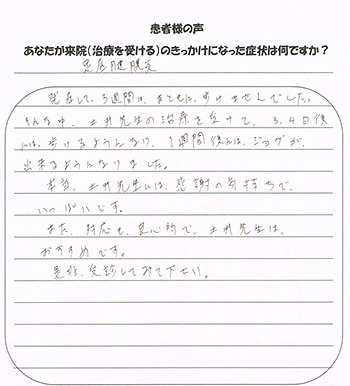 患者様の声
あなたが来院(治療を受ける)のきっかけになった症状は何ですか?
足底腱膜炎
発症して、3週間は、まともに、歩けませんでした。
そんな中、土井先生の治療を受けて、3、4日後
には、歩けるようになり、1週間後には、ジョグが
出来るようになりました。
本当、土井先生には、感謝の気持ちで、
いっぱいです。
また、対応も、良心的で、土井先生は、
おすすめです。
是非、受診してみて下さい。